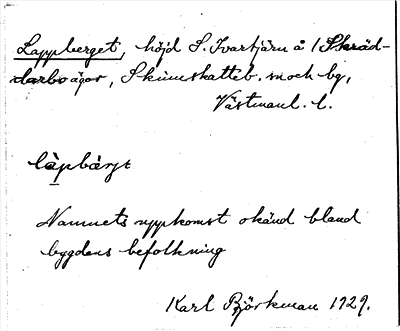 Lappberget, höjd S. Ivartjärn å / Skräd-
darbo ägor, Skinnskatteb. sn och bg,
Västmanl. l.
làpbärjet
Namnets uppkomst okänd bland
bygdens befolkning
Karl Björkman 1929.